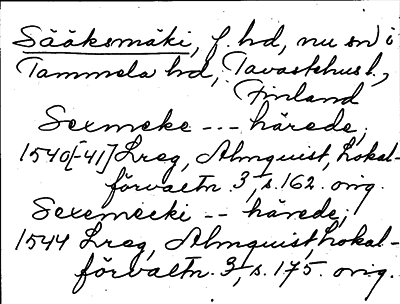 Sääksmäki, f. hd, nu sn i
Tammela hd, Tavastehus l.,
Finland
Sexmeke --- härede,
1540[-41] Lreg, Almquist, Lokal-
förvaltn. 3, s. 162. orig.
Sexemecki -- härede,
1544 Lreg, Almquist, Lokal-
förvaltn. 3, s. 175. orig.